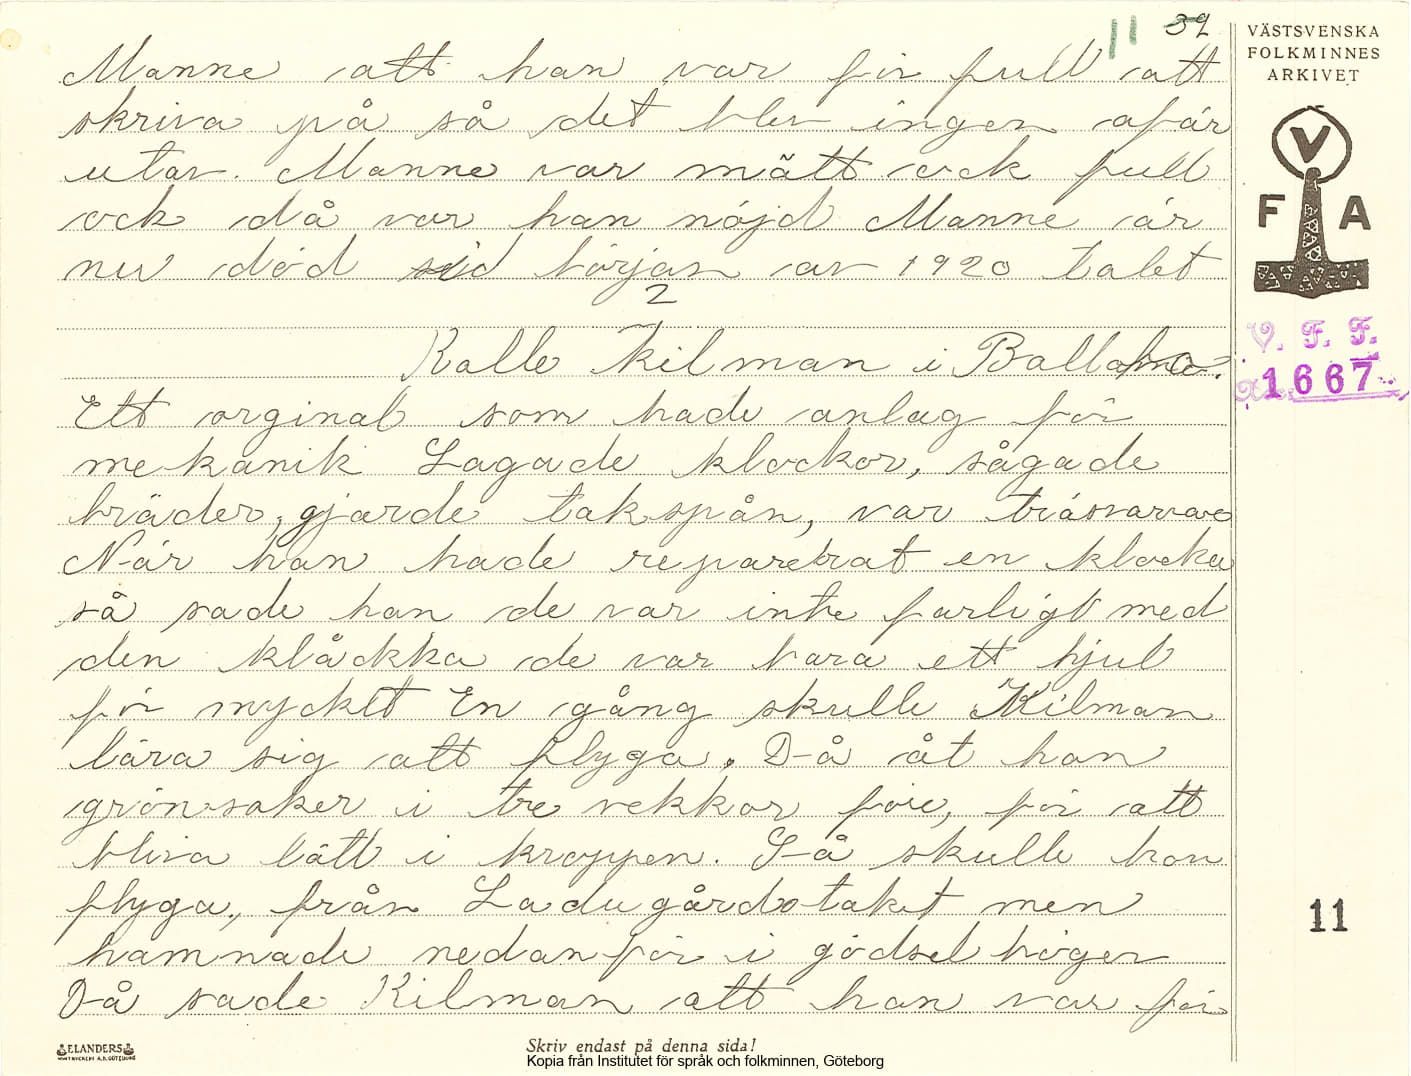 11 39
VÄSTSVENSKA
FOLKMINNES
ARKIVET
Manne att han var för full att
skriva på så det blev ingen afär
utav. Manne var mätt ock full
ock då var han nöjd Manne är
nu död sid början av 1920 talet
V
F A
2
Kalle Kilman i Ballabo.
V. F. F.
1667
Ett orginal som hade anlag för
mekanik Lagade klockor, sågade
bräder, gjorde takspån, var träsvarvare
När han hade reparerat en klocka
så sade han de var inte farligt med
den klåckka de var bara ett hjul
för mycket En gång skulle Kilman
lära sig att flyga. Då åt han
grönsaker i tre vekkor före, för att
bliva lätt i kroppen. Så skulle han
flyga, från Ladugårdstaket men
hamnade nedanför i gödselhögen
Då sade Kilman att han var för
11
ELANDERS
Skriv endast på denna sida!
Kopia från Institutet för språk och folkminnen, Göteborg